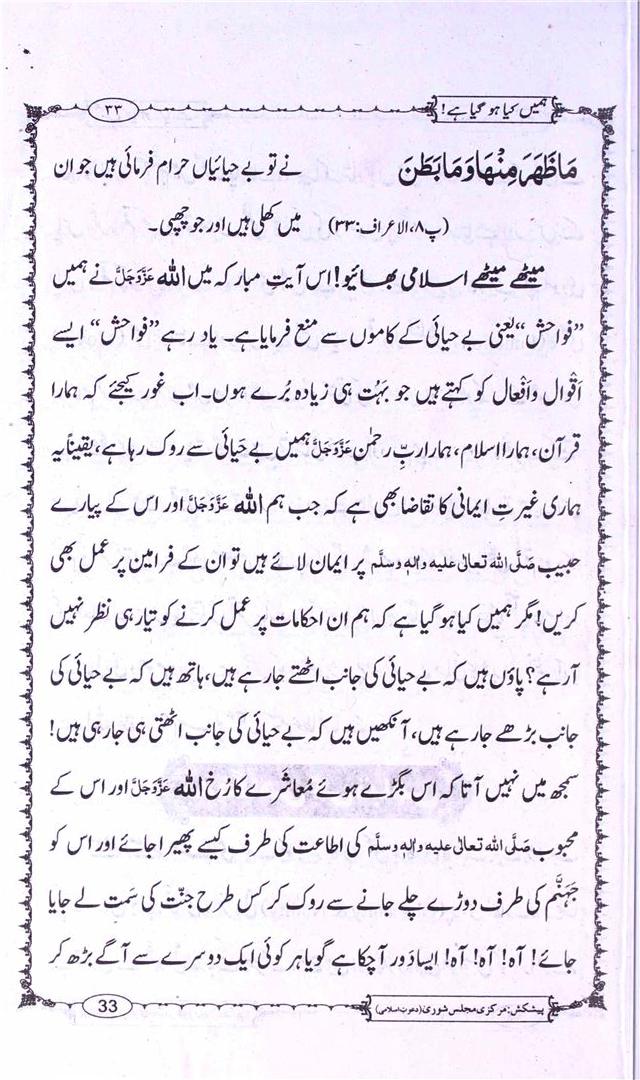 ہمیں کیا ہو گیا ہے!
۳۳
مَا ظَهَرَ مِنْهَا وَ مَا بَطَنَ نے تو بے حیائیاں حرام فرمائی ہیں جو ان
(پ۸، الاعراف:۳۳) میں کھلی ہیں اور جو چھپی۔
میٹھے میٹھے اسلامی بھائیو! اس آیتِ مبارکہ میں اللہ عَزَّوَجَلَّ نے ہمیں
”فواحش“ یعنی بے حیائی کے کاموں سے منع فرمایا ہے۔ یاد رہے ”فواحش“ ایسے
اَقْوال و اَفْعال کو کہتے ہیں جو بَہُت ہی زیادہ بُرے ہوں۔ اب غور کیجئے کہ ہمارا
قرآن، ہمارا اسلام، ہمارا ربِّ رحمٰن عَزَّوَجَلَّ ہمیں بے حَیائی سے روک رہا ہے، یقیناً یہ
ہماری غیرتِ ایمانی کا تقاضا بھی ہے کہ جب ہم اللہ عَزَّوَجَلَّ اور اس کے پیارے
حبیب صَلَّی اللہ تعالٰی علیہ والہٖ وسلَّم پر ایمان لائے ہیں تو ان کے فرامین پر عمل بھی
کریں! مگر ہمیں کیا ہو گیا ہے کہ ہم ان احکامات پر عمل کرنے کو تیار ہی نظر نہیں
آ رہے؟ پاؤں ہیں کہ بے حیائی کی جانب اٹھتے جا رہے ہیں، ہاتھ ہیں کہ بے حیائی کی
جانب بڑھے جا رہے ہیں، آنکھیں ہیں کہ بے حیائی کی جانب اٹھتی ہی جا رہی ہیں!
سمجھ میں نہیں آتا کہ اس بگڑے ہوئے مُعاشَرے کا رُخ اللہ عَزَّوَجَلَّ اور اس کے
محبوب صَلَّی اللہ تعالٰی علیہ والہٖ وسلَّم کی اطاعت کی طرف کیسے پھیرا جائے اور اس کو
جہنَّم کی طرف دوڑے چلے جانے سے روک کر کس طرح جنّت کی سَمت لے جایا
جائے! آہ! آہ! آہ! ایسا دَور آ چکا ہے گویا ہر کوئی ایک دوسرے سے آگے بڑھ کر
پیشکش: مرکزی مجلس شوریٰ (دعوتِ اسلامی)
33